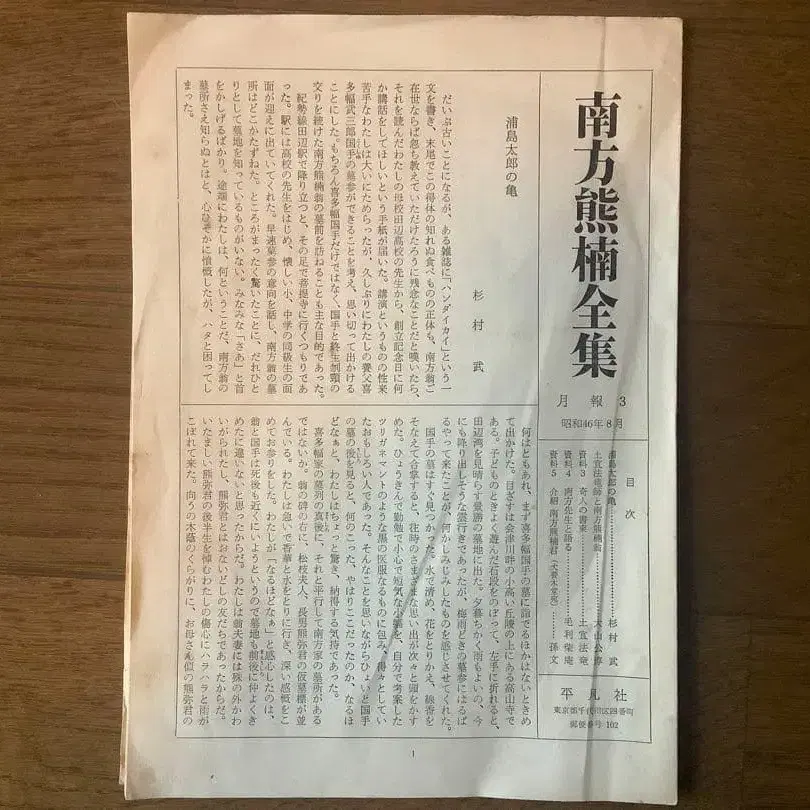 南方熊楠全集
月報 3
昭和46年8月
目次
浦島太郎の亀……杉村武
土宜法竜師と南方熊楠翁……大山公淳
資料3 奇人の書束……土宜法竜
資料4 南方先生と語る……毛利柴庵
資料5 介紹 南方熊楠君(犬養木堂宛)……孫文
平凡社
東京都千代田区四番町
郵便番号 102
浦島太郎の亀
杉村武
だいぶ古いことになるが、ある雑誌に「ハンダイカイ」という一
文を書き、末尾でこの得体の知れぬ食べものの正体も、南方翁ご
在世ならば忽ち教えていただけたろうに残念なことだと嘆いたら、
それを読んだわたしの母校田辺高校の先生から、創立記念日に何
か講話をしてほしいという手紙が届いた。講演というものの性来
苦手なわたしは大いにためらったが、久しぶりにわたしの養父喜
多幅武三郎国手の墓参ができることを考え、思い切って出かける
ことにした。もちろん喜多幅国手だけではなく、国手と終生刎頸の
交りを続けた南方熊楠翁の墓前を訪ねることも主な目的であった。
紀勢線田辺駅で降り立つと、その足で菩提寺に行くつもりであ
った。駅には高校の先生をはじめ、懐しい小、中学の同級生の面
面が迎えに出ていてくれた。早速墓参の意向を話し、南方翁の墓
所はどこかたずねた。ところがまったく驚いたことに、だれひと
りとして墓地を知っているものがいない。みんな「さあ」と首
をかしげるばかり。途端にわたしは、何ということだ、南方翁の
墓所さえ知らぬとはと、心ひそかに憤慨したが、ハタと困ってし
まった。
何はともあれ、まず喜多幅国手の墓に詣でるほかはないときめ
て出かけた。目ざすは会津川畔の小高い丘陵の上にある高山寺で
ある。子どものときよく遊んだ石段をのぼって、左手に折れると、
田辺湾を見晴らす景勝の墓地に出た。夕暮ちかく雨もよいの、今
にも降り出しそうな雲行きであったが、梅雨どきの墓参にはるば
るやって来たことが、何かしみじみしたものを感じさせてくれた。
国手の墓はすぐ見つかった。水で清め、花をとりかえ、線香を
そなえて合掌すると、往時のさまざまな思い出が次々と頭をかす
めた。ひょうきんで勤勉で小心で短気な小軀を、自分で考案した
ツリガネマントのような黒の医服なるものに包み、得々としてい
たおもしろい人であった。そんなことを思いながらひょいと国手
の墓の後を見ると、何のこった、やはりここだったのか、なるほ
どなぁと、わたしはちょっと驚き、納得する気持であった。
喜多幅家の墓列の真後に、それと平行して南方家の墓所がある
ではないか。翁の碑の右に、松枝夫人、長男熊弥君の仮墓標が並
んでいる。わたしは急いで香華と水をとりに行き、深い感慨をこ
めてお参りをした。わたしが「なるほどなぁ」と感心したのは、
翁と国手は死後も近くにいようというので墓地も前後に仲よくき
めたに違いないと思ったからだ。わたしは翁夫妻には殊の外かわ
いがられたし、熊弥君とはおないどしの友だちであったからだ。
いたましい熊弥君の後半生を悼むわたしの傷心にハラハラと雨が
こぼれて来た。向うの木蔭のくらがりに、お母さん似の熊弥の
1